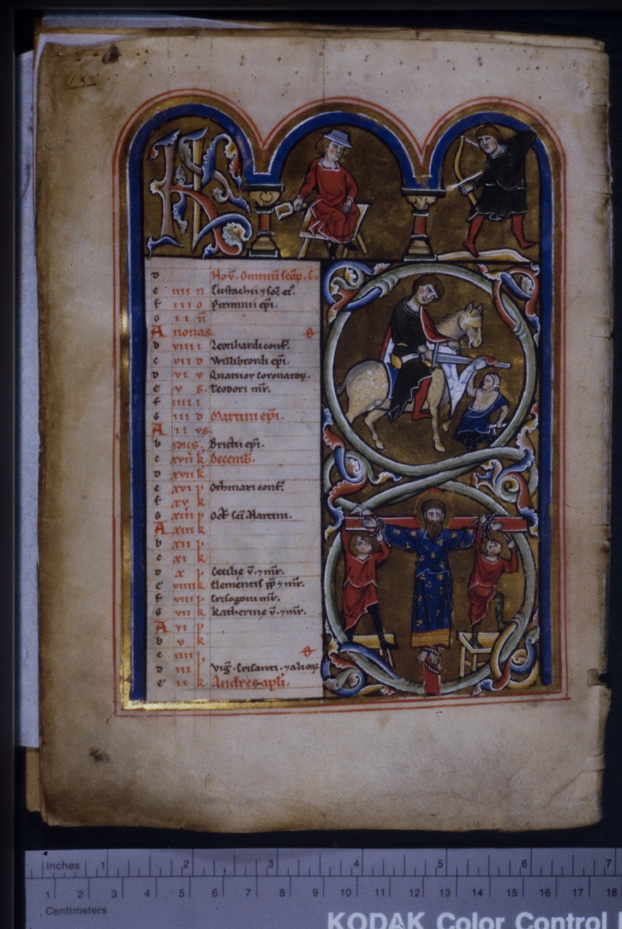 KL
D Nov̄. Omniū scōꝝ. l.
e iiii n Eustachii ⁊ soc̄ eī.
f iii o Pirminii ep̄i.
g ii n̄
A nonas.
b viiii Leonhardi conf̄.
c vii d Willibrordi ep̄i.
D vi v Quatuor coronatoꝝ.
e v s. Teodori mr̄.
f iiii i
g iii d Martini ep̄i.
A ii vs.
b idus. Brictii ep̄i.
c xviii k Decemb.
D xvii k
e xvi Othmari conf̄.
f xv k
g xiiii Oct̄ sc̄i Martini.
A xiii k
b xii
c xi k
D x Cecilie v̄. ⁊ mr̄.
e viiii k Clementis p̄p ⁊ mr̄.
f viii Crisogoni mr̄.
g vii k Katherine v̄. ⁊ mr̄.
A vi
b v k
c iiii
D iii Vig̅. Crisanti. ⁊ alioꝝ
e ii k Andree apl̄i.
Inches 1 2 3 4 5 6 7
1 2 3 4 5 6 7 8 9 10 11 12 13 14 15 16 17 18
Centimeters
KODAK Color Control